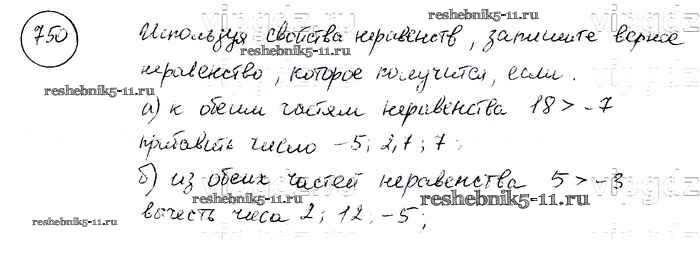 750
Используя свойства неравенств, запишите верное
неравенство, которое получится, если.
а) к обеим частям неравенства 18 > -7
прибавить число -5; 2,7; 7;
б) из обеих частей неравенства 5 > -3
вычесть числа 2; 12; -5;
reshebnik5-11.ru
reshebnik5-11.ru
reshebnik5-11.ru
reshebnik5-11.ru
reshebnik5-11.ru
reshebnik5-11.ru